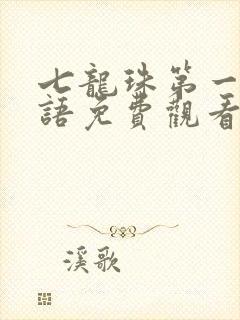 七龍珠第一
語免費觀看
溪歌